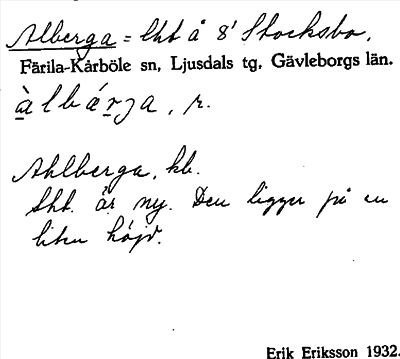 Alberga = lht å 8' Stocksbo,
Färila-Kårböle sn, Ljusdals tg, Gävleborgs län.
àlbárja, r.
Ahlberga, kb.
Lht. är ny. Den ligger på en
liten höjd.
Erik Eriksson 1932.